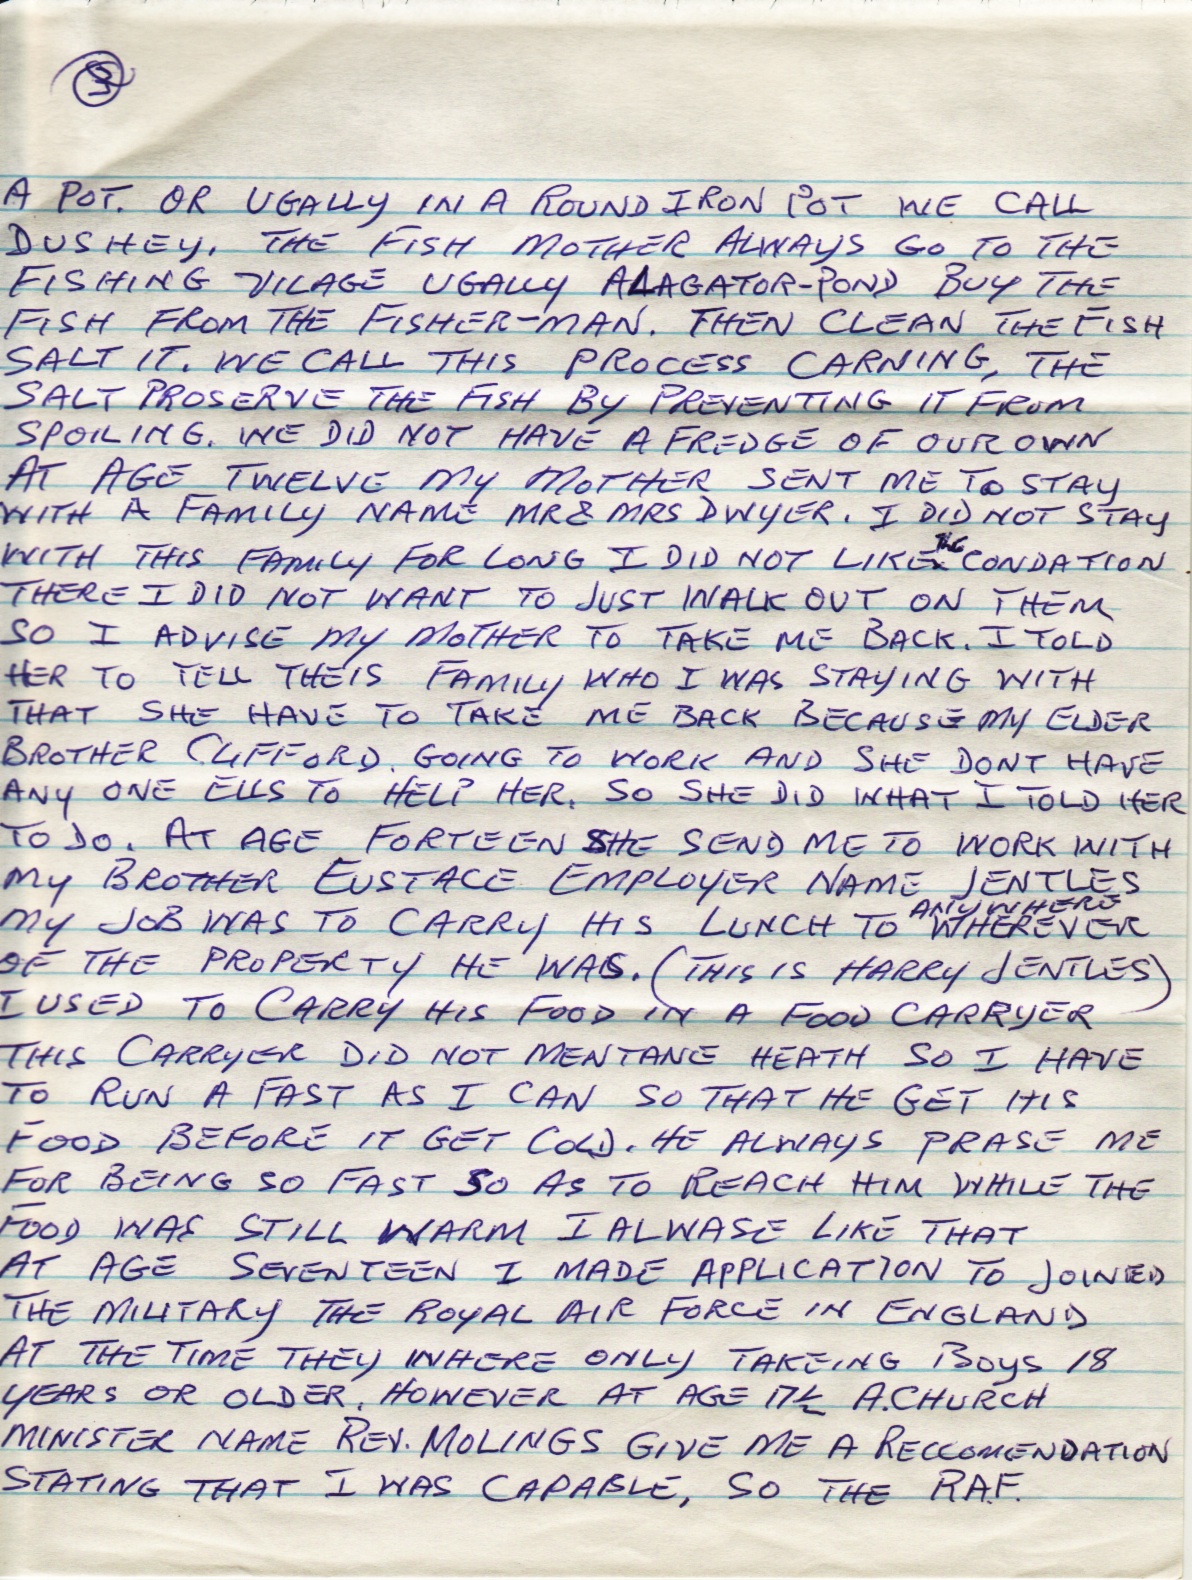 A POT. OR UGALLY IN A ROUND IRON POT WE CALL
DUSHEY. THE FISH MOTHER ALWAYS GO TO THE
FISHING VILAGE UGALLY ALAGATOR-POND BUY THE
FISH FROM THE FISHER-MAN. THEN CLEAN THE FISH
SALT IT. WE CALL THIS PROCESS CARNING, THE
SALT PROSERVE THE FISH BY PREVENTING IT FROM
SPOILING. WE DID NOT HAVE A FREDGE OF OUR OWN
AT AGE TWELVE MY MOTHER SENT ME TO STAY
WITH A FAMILY NAME MR & MRS DWYER. I DID NOT STAY
WITH THIS FAMILY FOR LONG I DID NOT LIKE THE CONDATION
THERE I DID NOT WANT TO JUST WALK OUT ON THEM
SO I ADVISE MY MOTHER TO TAKE ME BACK. I TOLD
HER TO TELL THEIS FAMILY WHO I WAS STAYING WITH
THAT SHE HAVE TO TAKE ME BACK BECAUSE MY ELDER
BROTHER CLIFFORD. GOING TO WORK AND SHE DONT HAVE
ANY ONE ELLS TO HELP HER. SO SHE DID WHAT I TOLD HER
TO DO. AT AGE FORTEEN SHE SEND ME TO WORK WITH
MY BROTHER EUSTACE EMPLOYER NAME JENTLES
MY JOB WAS TO CARRY HIS LUNCH TO ANYWHERE WHEREVER
OF THE PROPERTY HE WAS. (THIS IS HARRY JENTLES)
I USED TO CARRY HIS FOOD IN A FOOD CARRYER
THIS CARRYER DID NOT MENTANE HEATH SO I HAVE
TO RUN A FAST AS I CAN SO THAT HE GET HIS
FOOD BEFORE IT GET COLD. HE ALWAYS PRASE ME
FOR BEING SO FAST SO AS TO REACH HIM WHILE THE
FOOD WAS STILL WARM I ALWASE LIKE THAT
AT AGE SEVENTEEN I MADE APPLICATION TO JOINED
THE MILITARY THE ROYAL AIR FORCE IN ENGLAND
AT THE TIME THEY WHERE ONLY TAKEING BOYS 18
YEARS OR OLDER. HOWEVER AT AGE 17½ A.CHURCH
MINISTER NAME REV. MOLINGS GIVE ME A RECCOMENDATION
STATING THAT I WAS CAPABLE, SO THE R.A.F.